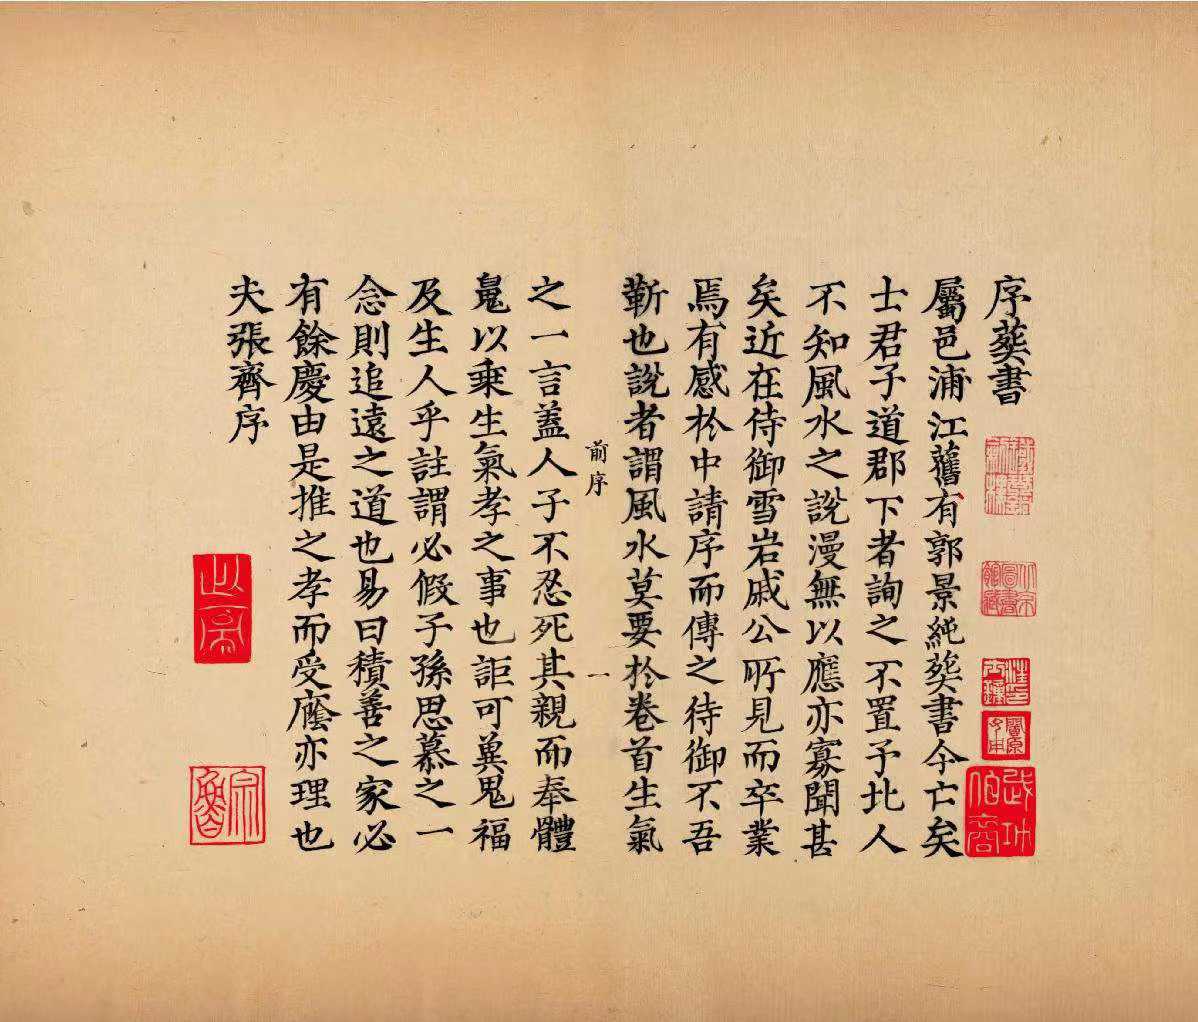 序葬書
屬邑浦江舊有郭景純葬書今亡矣
士君子道郡下者詢之不置予北人
不知風水之說漫無以應亦寡聞甚
矣近在待御雪岩戚公所見而卒業
焉有感於中請序而傳之待御不吾
靳也說者謂風水莫要於卷首生氣
前序
一
之一言蓋人子不忍死其親而奉體
以乘生氣孝之事也詎可冀鬼福
及生人乎註謂必假子孫思慕之一
念則追遠之道也易曰積善之家必
有餘慶由是推之孝而受廕亦理也
夫張齊序
北京圖書館藏
武功伯裔